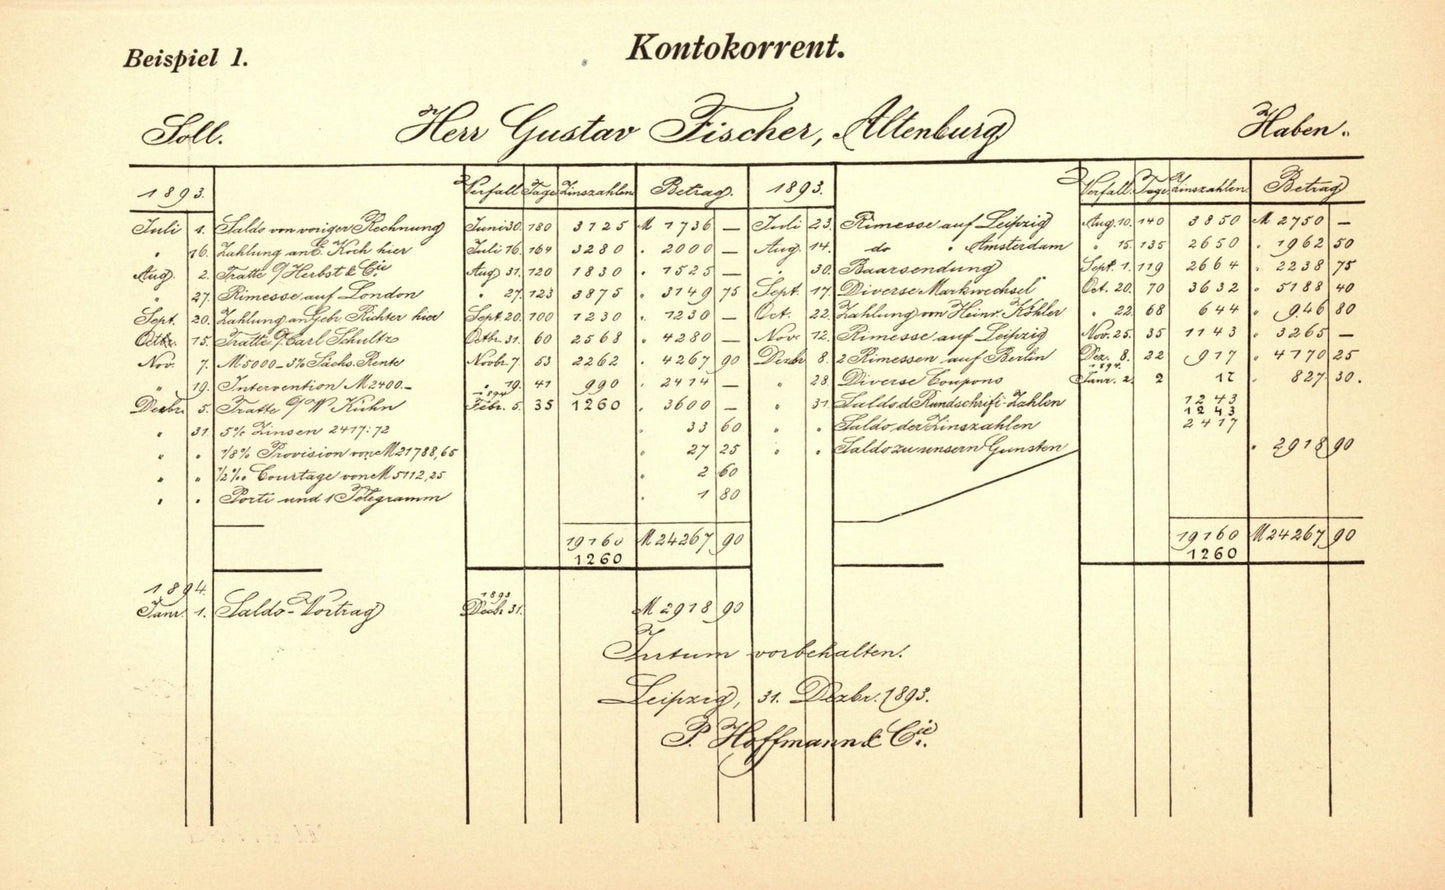 Beispiel 1.
Kontokorrent.
Soll. Herr Gustav Fischer, Altenburg Haben.
1893. Verfall Tage Zinszahlen Betrag. 1893. Verfall. Tage Zinszahlen. Betrag
Juli 1. Saldo von voriger Rechnung Juni 30. 180 3125 M 1736 — Juli 23. Rimesse auf Leipzig Aug. 10. 140 3850 M 2750 —
" 16. Zahlung an C. Koch hier Juli 16. 164 3280 " 2000 — Aug. 14. do " Amsterdam " 15. 135 2650 " 1962 50
Aug. 2. Tratte O/ Herbst & Cie Aug. 31. 120 1830 " 1525 — " 30. Baarsendung Sept. 1. 119 2664 " 2238 75
" 27. Rimesse auf London " 27. 123 3875 " 3149 75 Sept. 17. Diverse Markwechsel Oct. 20. 70 3632 " 5188 40
Sept. 20. Zahlung an Gebr. Richter hier Sept. 20. 100 1230 " 1230 — Oct. 22. Zahlung von Heinr. Köhler " 22. 68 644 " 946 80
Octbr. 15. Tratte O/ Carl Schultz Octbr. 31. 60 2568 " 4280 — Nov. 12. Rimesse auf Leipzig Nov. 25. 35 1143 " 3265 —
Nov. 7. M 5000.– 3% Sächs. Rente Novbr. 7. 53 2262 " 4267 90 Dezbr 8. 2 Rimessen auf Berlin Dez. 8. 22 917 " 4170 25
" 19. Intervention M 2400.– " 19. 41 990 " 2414 — " 28 Diverse Coupons 1894. Janr. 2. 2 17 " 827 30.
Decbr. 5. Tratte O/ W. Kuhn 1894 Febr. 5. 35 1260 " 3600 — " 31 Saldo d. Rundschrift-Zahlen 1243
1243
" 31. 5% Zinsen 2417:72 " 33 60 " " Saldo der Zinszahlen 2417
" " 1/8% Provision von M 21788,65 " 27 25 " " Saldo zu unsern Gunsten " 2918 90
" " 1/2‰ Courtage von M 5112,25 " 2 60
" " Porti und 1 Telegramm " 1 80
19160 M 24267 90 19160 M 24267 90
1260 1260
1894. 1893
Janr. 1. Saldo-Vortrag Decbr. 31. M 2918 90
Irrtum vorbehalten.
Leipzig, 31. Dezbr. 1893.
P. Hoffmann & Cie.